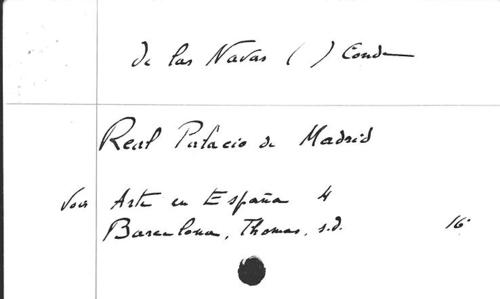 de las Navas ( ) Conde
Real Palacio de Madrid
Voir Arte en España 4
Barcelona, Thomas, s.d. 16°